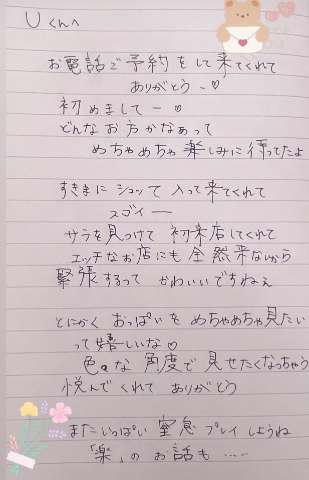 Uくんへ
お電話で予約をして来てくれて
ありがとう~♡
初めまして~♡
どんなお方かなぁって
めちゃめちゃ楽しみに待ってたよ
すきまにショッて入って来てくれて
スゴイ―
サラを見つけて初来店してくれて
エッチなお店にも全然来ないから
緊張するって かわいいですねぇ
とにかく おっぱいを めちゃめちゃ見たい
って嬉しいな♡
色々な角度で見せたくなっちゃう
悦んでくれて ありがとう
またいっぱい 窒息プレイしようね
「楽」のお話も……